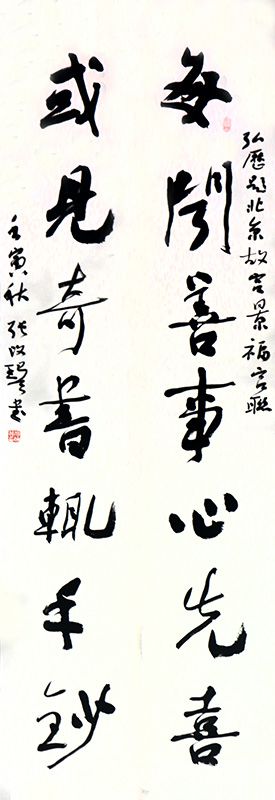 弘歷題北京故宮景福宮聯
每聞善事心先喜
或見奇書輒手鈔
壬寅秋張改琴書